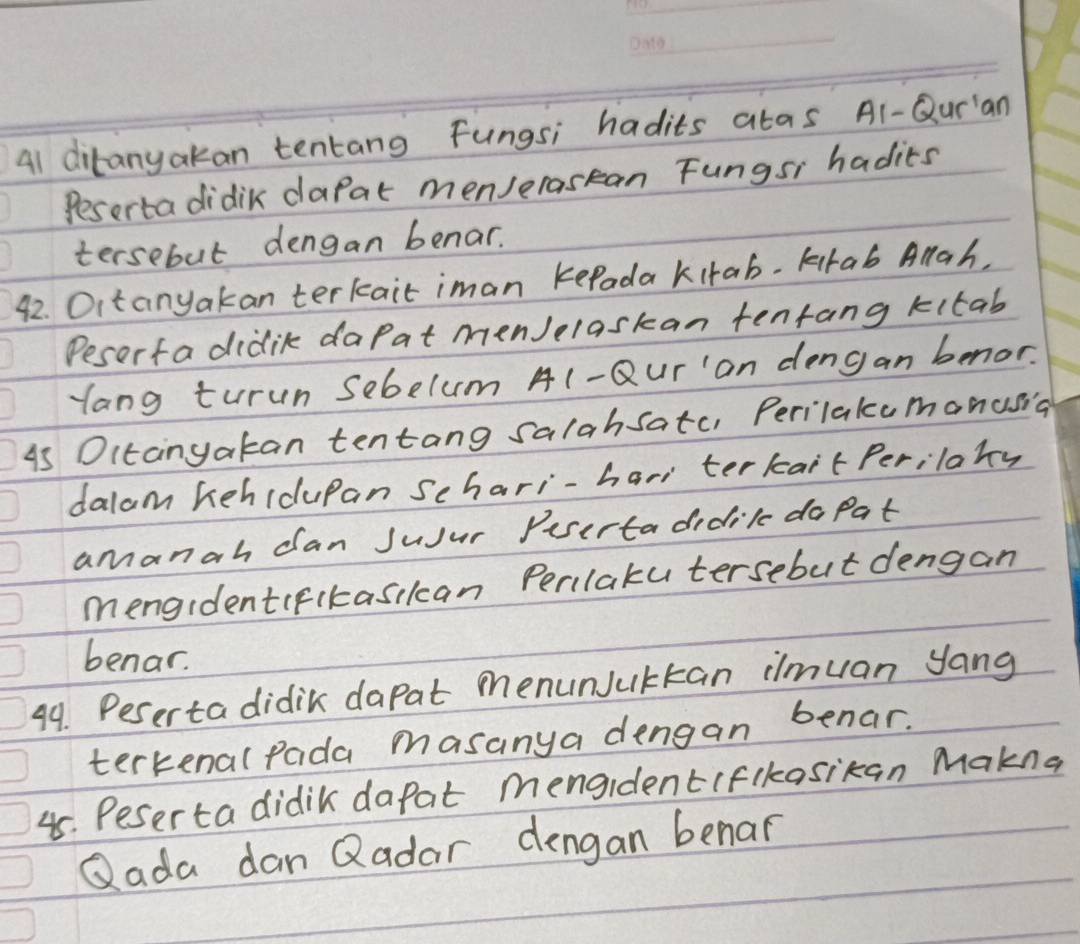 No
Date
41 ditanyakan tentang Fungsi hadits atas Al-Qur'an
Peserta didik dapat menjelaskan Fungsi hadits
tersebut dengan benar.
42. Ditanyakan terkait iman kepada kitab-kitab Allah.
Peserta didik dapat menjelaskan tentang kitab
Yang turun sebelum Al-Qur'an dengan benar.
43 Ditanyakan tentang salahsatu Perilaku manusia
dalam kehidupan sehari-hari terkait Perilaku
amanah dan jujur Peserta didik dapat
mengidentifikasikan Perilaku tersebut dengan
benar.
44. Peserta didik dapat menunjukkan ilmuan yang
terkenal pada masanya dengan benar.
45. Peserta didik dapat mengidentifikasikan Makna
Qada dan Qadar dengan benar